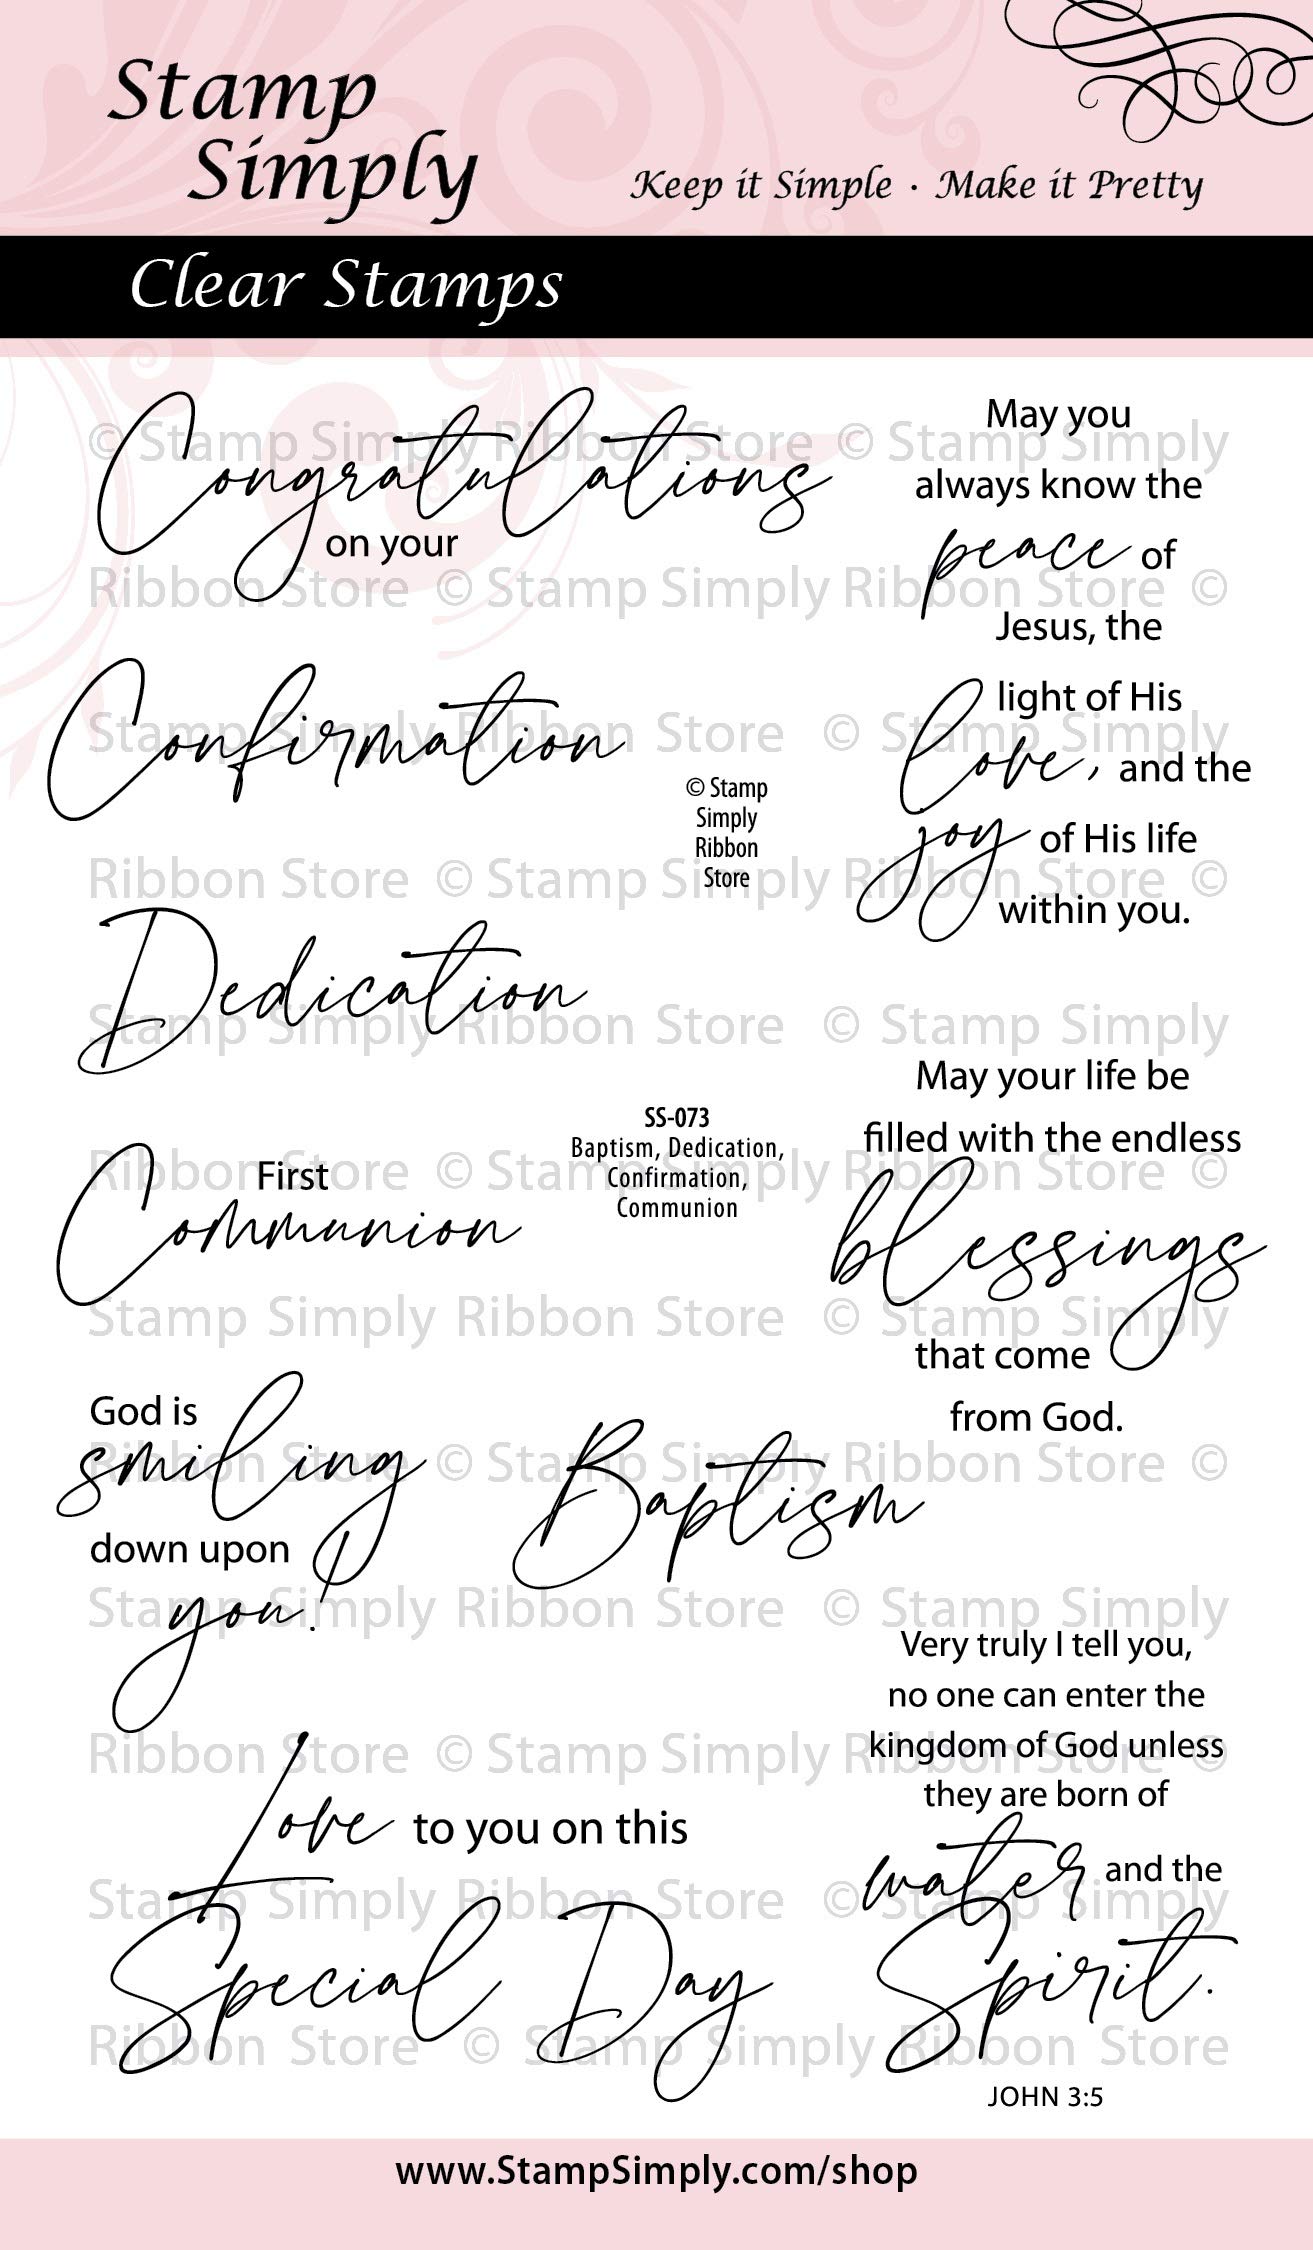 Stamp
Simply
Keep it Simple · Make it Pretty
Clear Stamps
Congratulations
on your
Confirmation
Dedication
First
Communion
God is
smiling
down upon
you!
Baptism
Love to you on this
Special Day
© Stamp
Simply
Ribbon
Store
SS-073
Baptism, Dedication,
Confirmation,
Communion
May you
always know the
peace of
Jesus, the
light of His
love, and the
joy of His life
within you.
May your life be
filled with the endless
blessings
that come
from God.
Very truly I tell you,
no one can enter the
kingdom of God unless
they are born of
water and the
Spirit.
JOHN 3:5
© Stamp Simply Ribbon Store © Stamp Simply
Ribbon Store © Stamp Simply Ribbon Store ©
Stamp Simply Ribbon Store © Stamp Simply
Ribbon Store © Stamp Simply Ribbon Store ©
Stamp Simply Ribbon Store © Stamp Simply
Ribbon Store © Stamp Simply Ribbon Store ©
Stamp Simply Ribbon Store © Stamp Simply
Ribbon Store © Stamp Simply Ribbon Store ©
Stamp Simply Ribbon Store © Stamp Simply
Ribbon Store © Stamp Simply Ribbon Store ©
Stamp Simply Ribbon Store © Stamp Simply
Ribbon Store © Stamp Simply Ribbon Store
www.StampSimply.com/shop